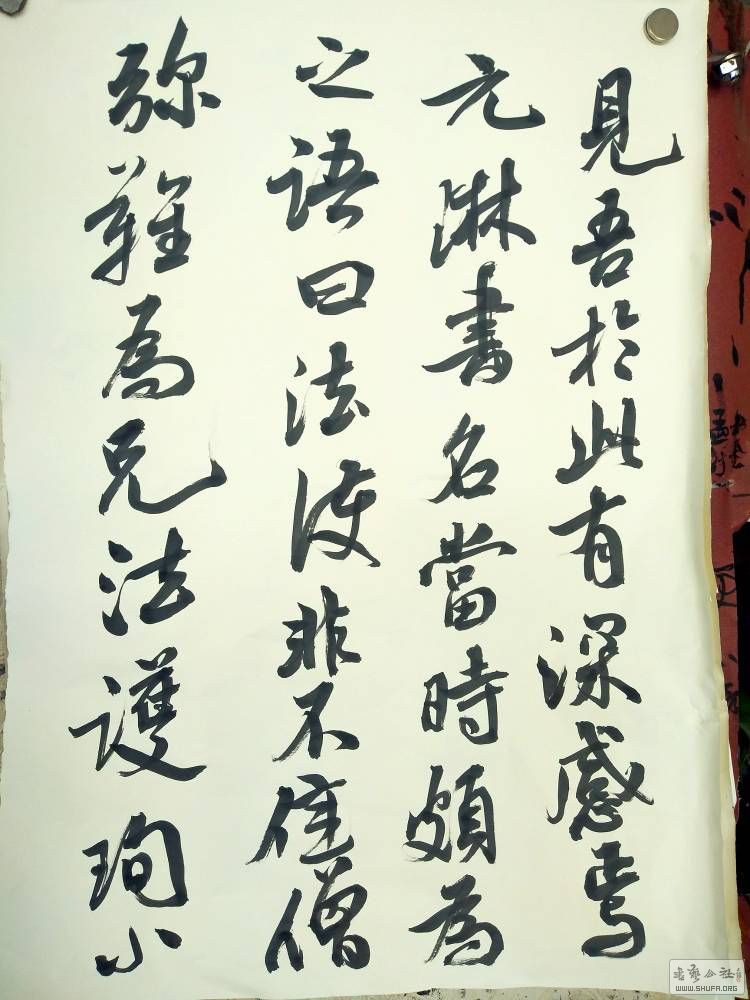 見吾於此有深感焉
元淋書名當時頗為
之語曰法護非不佳僧
弥難為兄法護珣小
書藝公社
WWW.SHUFA.ORG